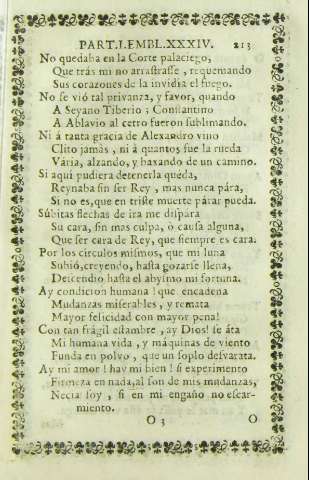 PART.I.EMBL.XXXIV. 213
No quedaba en la Corte palaciego,
Que trás mi no arrastrasse, requemando
Sus corazones de la invidia el fuego.
No se vió tal privanza, y favor, quando
A Seyano Tiberio ; Constantino
A Ablavio al cetro fueron sublimando.
Ni á tanta gracia de Alexandro vino
Clito jamàs , ni á quantos fue la rueda
Vária, alzando, y baxando de un camino.
Si aqui pudiera detenerla queda,
Reynaba sin ser Rey , mas nunca pára,
Si no es,que en triste muerte párar pueda.
Súbitas flechas de ira me dispara
Su cara, sin mas culpa, ò causa alguna,
Que ser cara de Rey, que siempre es cara.
Por los circulos mismos, que mi luna
Subió,creyendo, hasta gozarse llena,
Descendio hasta el abysmo mi fortuna.
Ay condicion humana ! que encadena
Mudanzas miserables , y remata
Mayor felicidad con mayor pena!
Con tan frágil estambre , ay Dios! se áta
Mi humana vida , y máquinas de viento
Funda en polvo , que un soplo desvarata.
Ay mi amor ! hay mi bien ! si experimento
Firmeza en nada,al son de mis mudanzas,
Necia soy , si en mi engaño no escar-
miento.
O 3 O